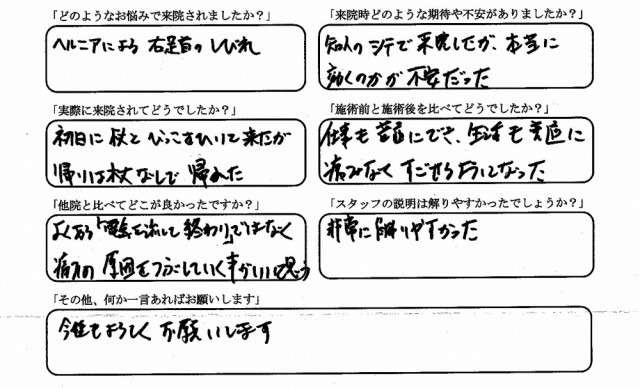 「どのようなお悩みで来院されましたか？」
ヘルニアによる 右足首の しびれ
「来院時どのような期待や不安がありましたか？」
知人のツテで来院したが、本当に
効くのかが 不安だった
「実際に来院されてどうでしたか？」
初日に 杖と びっこをひいて来たが
帰りは杖なしで 帰れた
「施術前と施術後を比べてどうでしたか？」
仕事も 普通にでき、生活も 普通に
痛みなく すごせるようになった
「他院と比べてどこが良かったですか？」
よくある「電気を流して終わり」ではなく
痛みの 原因をつぶしていく事がいいと思う
「スタッフの説明は解りやすかったでしょうか？」
非常に 解りやすかった
「その他、何か一言あればお願いします」
今後もよろしく お願いします